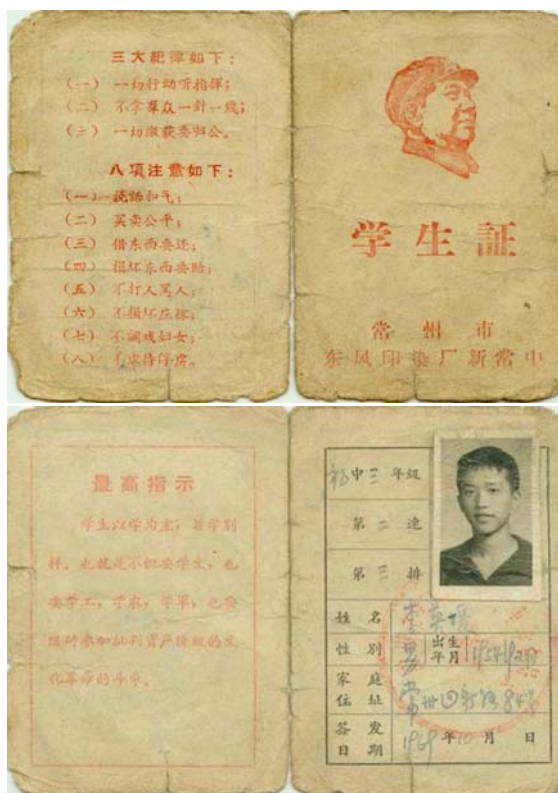 三大紀律如下：
（一） 一切行动听指揮；
（二） 不拿羣众一針一綫；
（三） 一切缴获要归公。
八項注意如下：
（一） 說話和气；
（二） 买卖公平；
（三） 借东西要还；
（四） 损坏东西要賠；
（五） 不打人罵人；
（六） 不損坏庄稼；
（七） 不調戏妇女；
（八） 不虐待俘虏。
学生証
常州市
东风印染厂新常中
最高指示
学生以学为主，兼学别
样，也就是不但要学文，也
要学工，学农，学軍，也要
随时参加批判資产阶級的文
化革命的斗爭。
初中三年級
第二連
第三排
姓名
性別 男 出生年月 1954
家庭住址 常州 84号
签发日期 1969年10月 日